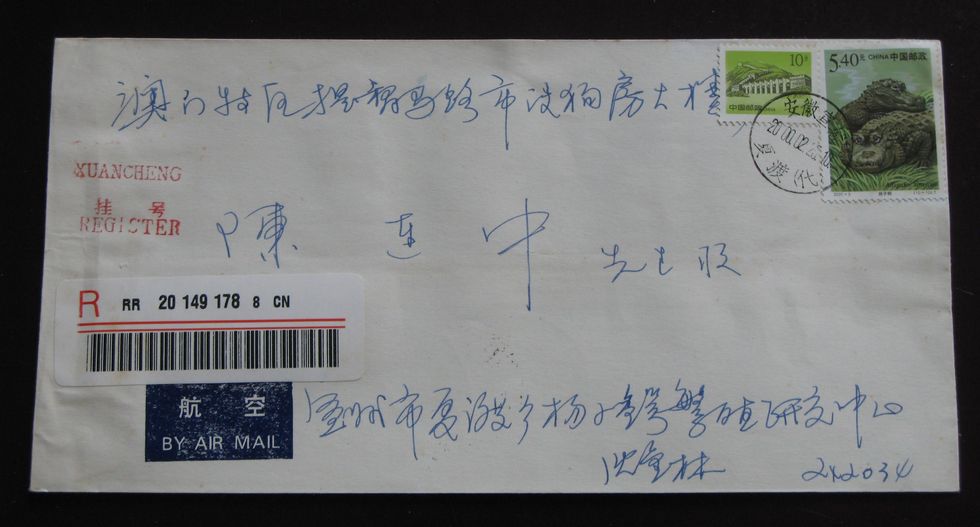 10分
中国邮政
5.40元 CHINA 中国邮政
澳门特区提督马路市政狗房大楼
安徽宣
2000.02.2
夏渡(代)
XUANCHENG
挂 号
REGISTER
陳 连 中 先生 收
R RR 20 149 178 8 CN
航 空
BY AIR MAIL
宣州市夏渡乡扬子鳄繁殖研究中心
林 242034